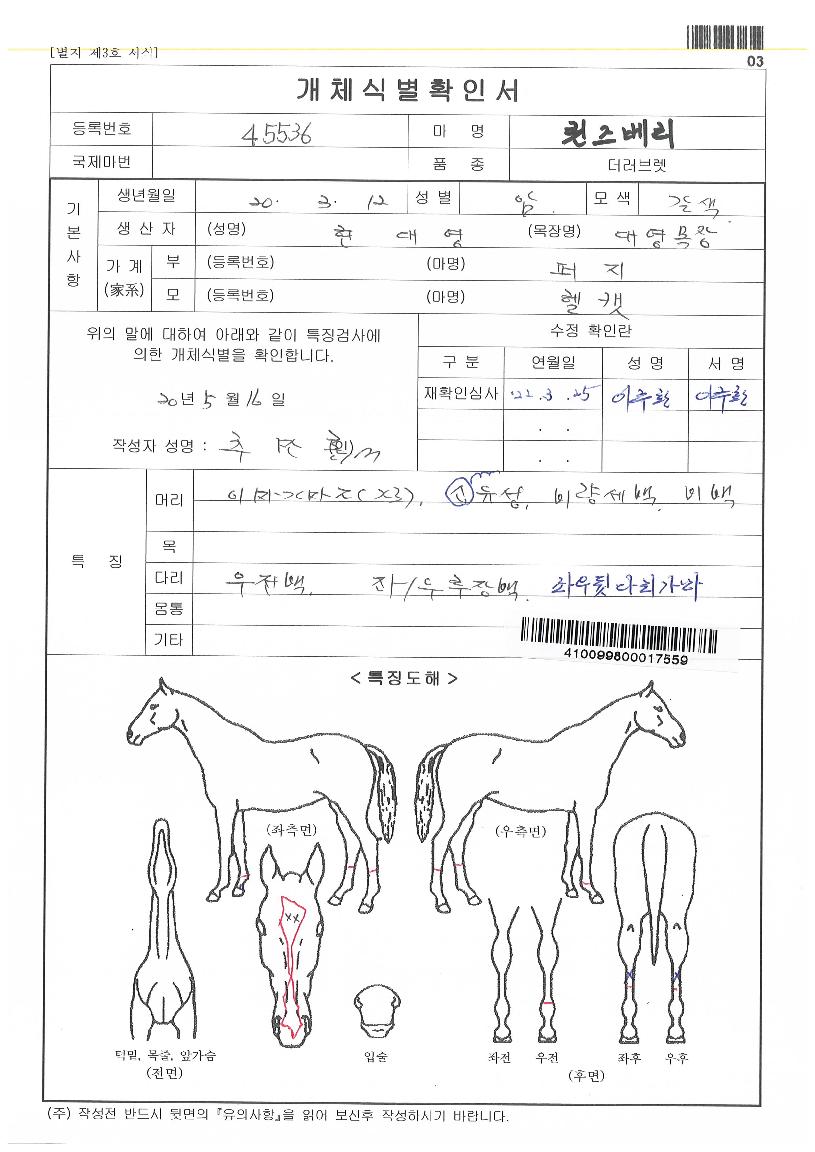 [별지 제3호 서식]
03
개체식별확인서
등록번호 45536 마 명 퀸즈베리
국제마번 품 종 더러브렛
기본사항
생년월일 20. 3. 12 성 별 암 모 색 갈색
생 산 자 (성명) 현 대 영 (목장명) 대영목장
가 계 (家系) 부 (등록번호) (마명) 퍼 지
모 (등록번호) (마명) 헬 캣
위의 말에 대하여 아래와 같이 특징검사에
의한 개체식별을 확인합니다.
20년 5 월 16 일
작성자 성명 : (인)
수정 확인란
구 분 연월일 성 명 서 명
재확인심사 '22. 3. 25
. .
. .
특 징
머리 유성, 비량세백, 비백
목
다리 우전백, 좌/우후장백, 좌우뒷다리가마
몸통
기타
410099800017559
< 특징도해 >
(좌측면) (우측면)
턱밑, 목줄, 앞가슴 입술 좌전 우전 좌후 우후
(전면) (후면)
(주) 작성전 반드시 뒷면의 『유의사항』을 읽어 보신후 작성하시기 바랍니다.